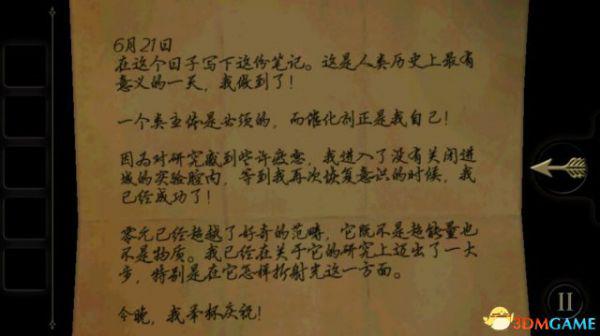 6月21日
在这个日子写下这份笔记。这是人类历史上最有
意义的一天，我做到了！
一个类立体是必须的，而催化剂正是我自己！
因为对研究感到些许疲惫，我进入了没有关闭进
城的实验腔内，等到我再次恢复意识的时候，我
已经成功了！
零元已经超越了好奇的范畴，它既不是超能量也
不是物质。我已经在关于它的研究上迈出了一大
步，特别是在它怎样折射光这一方面。
今晚，我举杯庆祝！
3DMGAME